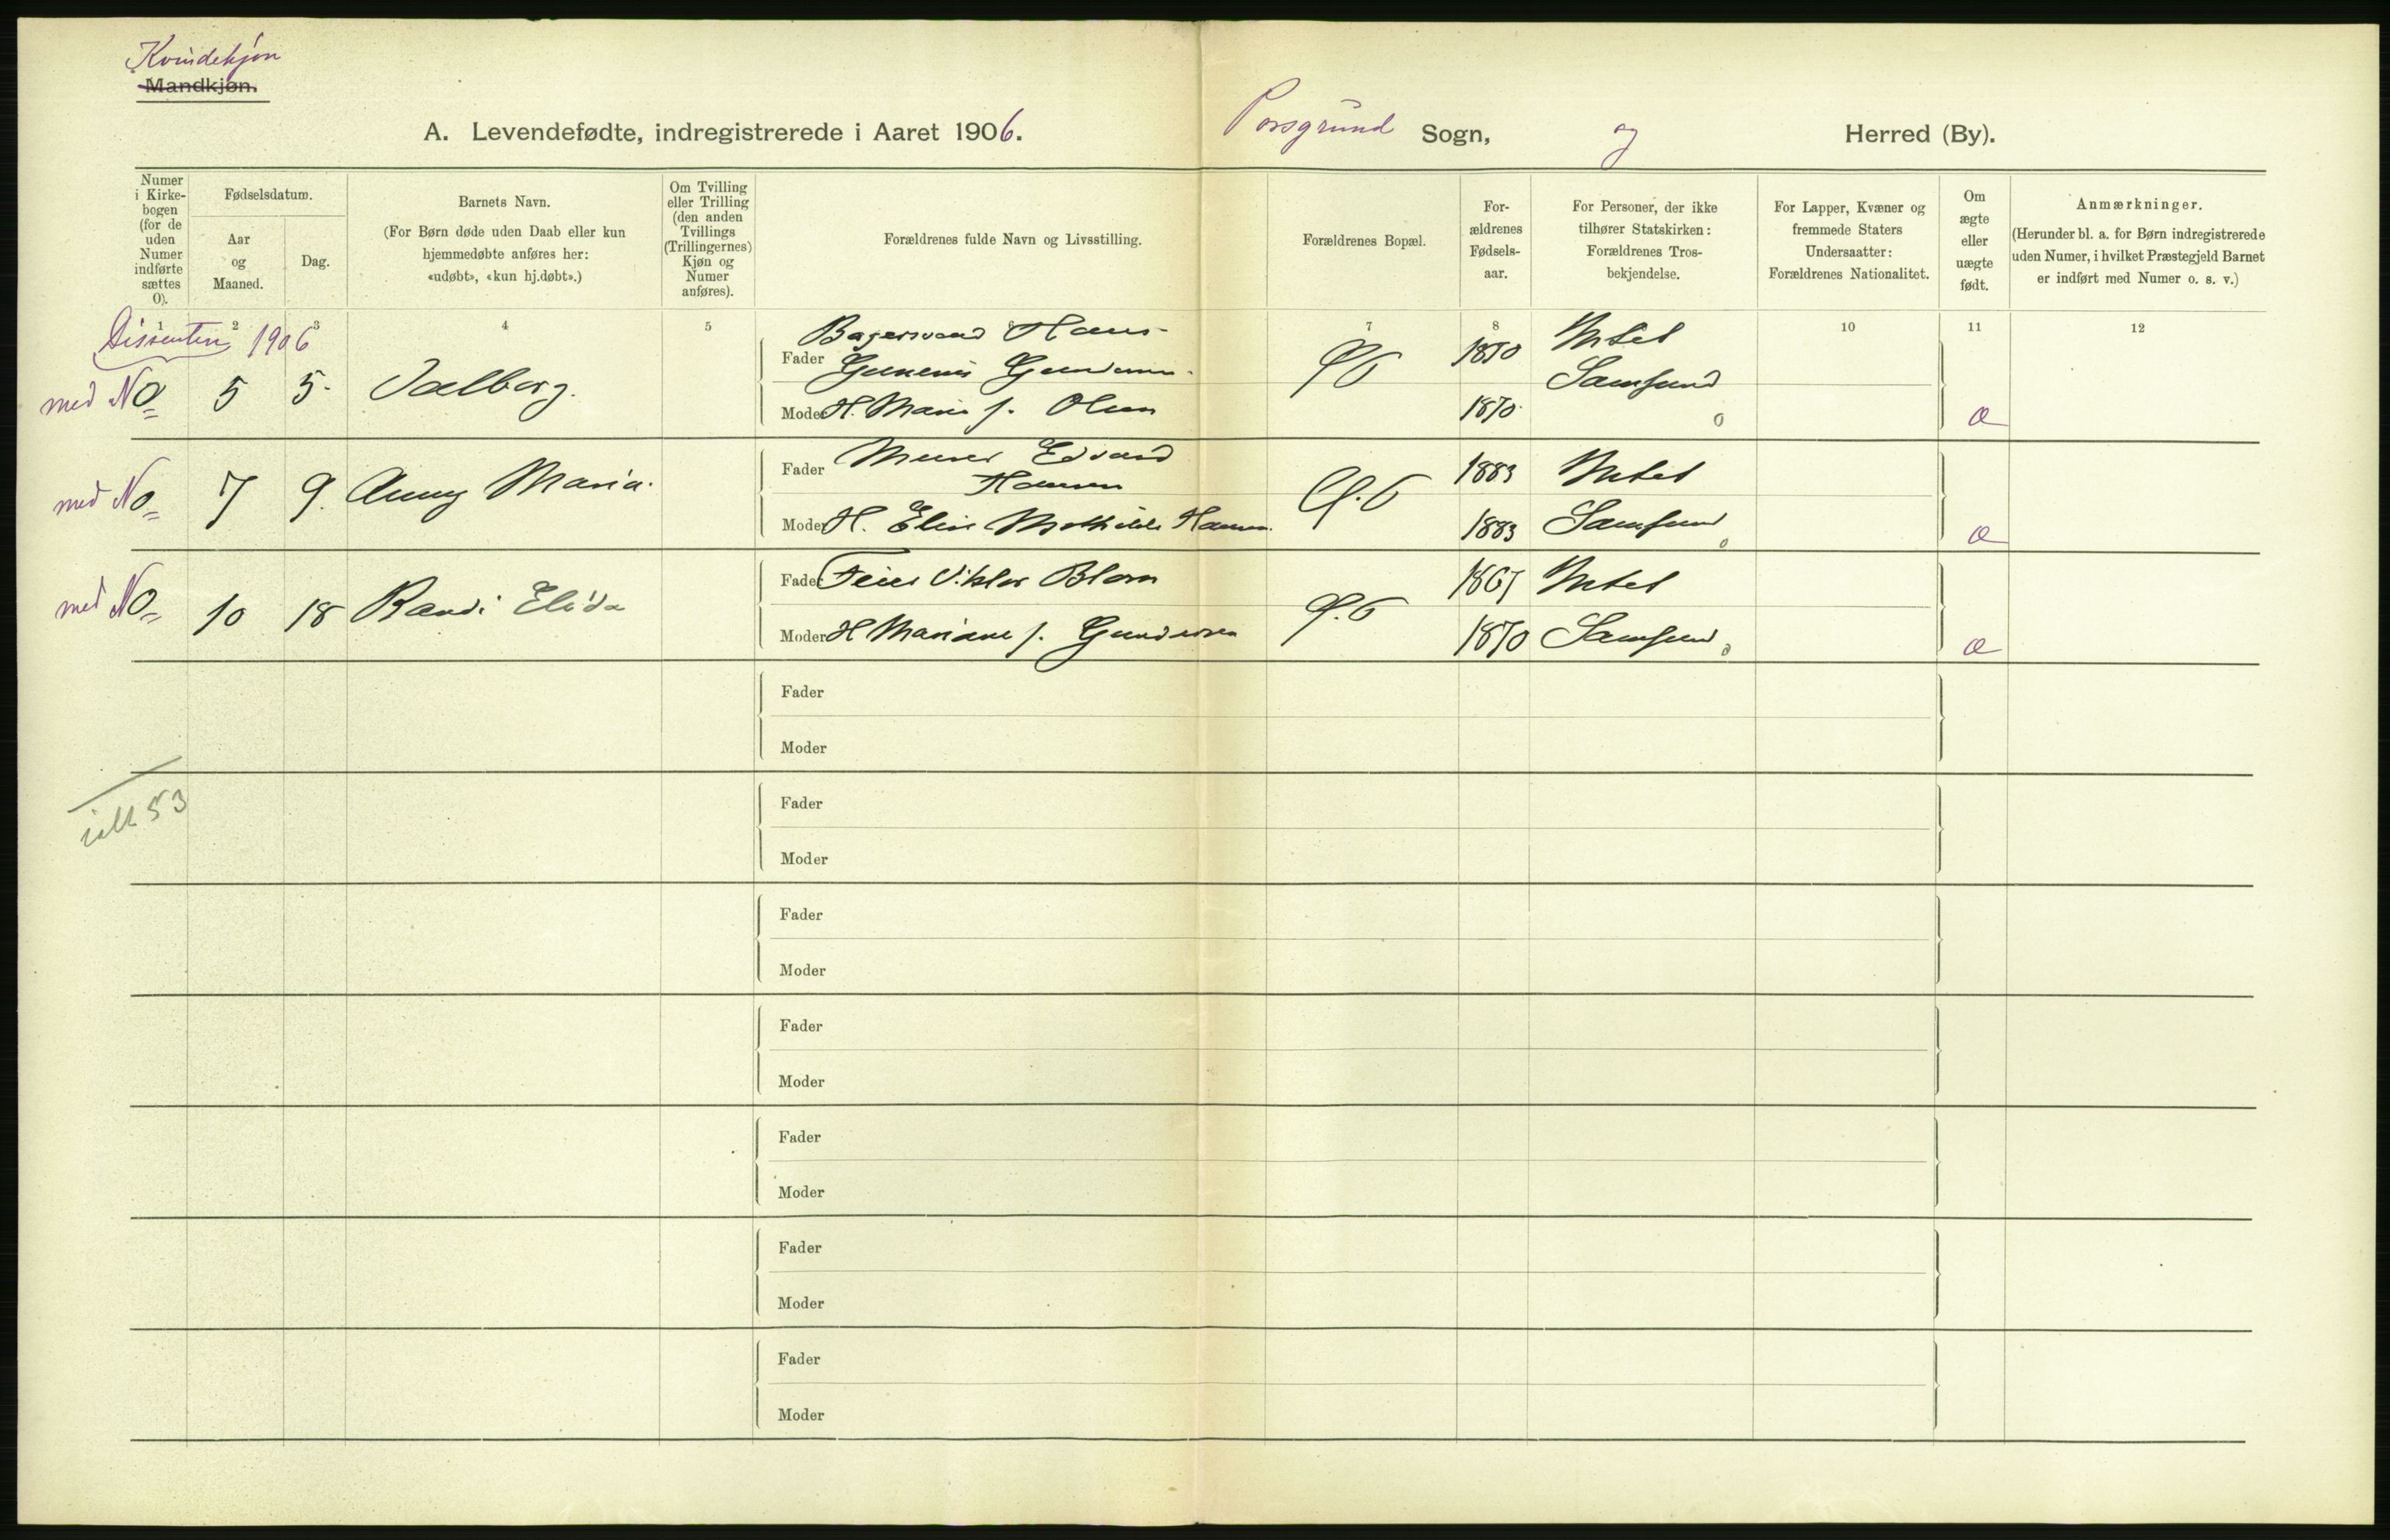 Kvindekjøn
Mandkjøn.
A. Levendefødte, indregistrerede i Aaret 1906.
Porsgrund Sogn, og Herred (By).
Numer i Kirkebogen (for de uden Numer indførte sættes 0).
Fødselsdatum.
Aar og Maaned.
Dag.
Barnets Navn.
(For Børn døde uden Daab eller kun hjemmedøbte anføres her: «udøbt», «kun hj.døbt».)
Om Tvilling eller Trilling (den anden Tvillings (Trillingernes) Kjøn og Numer anføres).
Forældrenes fulde Navn og Livsstilling.
Forældrenes Bopæl.
For-ældrenes Fødsels-aar.
For Personer, der ikke tilhører Statskirken: Forældrenes Tros-bekjendelse.
For Lapper, Kvæner og fremmede Staters Undersaatter: Forældrenes Nationalitet.
Om ægte eller uægte født.
Anmærkninger.
(Herunder bl. a. for Børn indregistrerede uden Numer, i hvilket Præstegjeld Barnet er indført med Numer o. s. v.)
1 2 3 4 5 7 8 10 11 12
Dissenter 1906
med No 5 5. Valborg.
Fader Bagersvend Hans
Moder H. Marie f. Olsen
1850
1870
Samfund
med No 7 9. Anny Maria.
Fader Murer Edvard
Hansen
Moder H. Elise Mathilde Hansen.
1883
1883
Samfund
med No 10 18 Randi Elida
Fader Feier Viktor Blom
Moder H Mariane f. Gundersen
1867
1870
Samfund
Fader
Moder
ialt 53
Fader
Moder
Fader
Moder
Fader
Moder
Fader
Moder
Fader
Moder
Fader
Moder